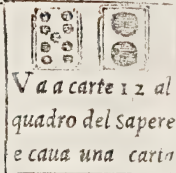 Va a carte 12 al
quadro del Sapere
e caua una carta